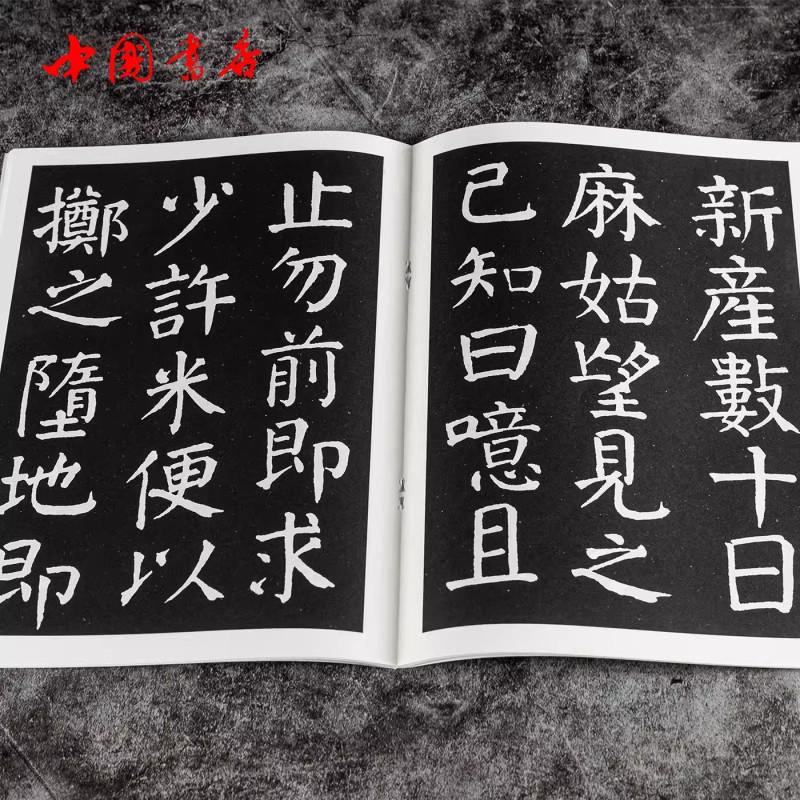 中國書店
新產數十日
麻姑望見之
已知曰噫且
止勿前即求
少許米便以
擲之墮地即